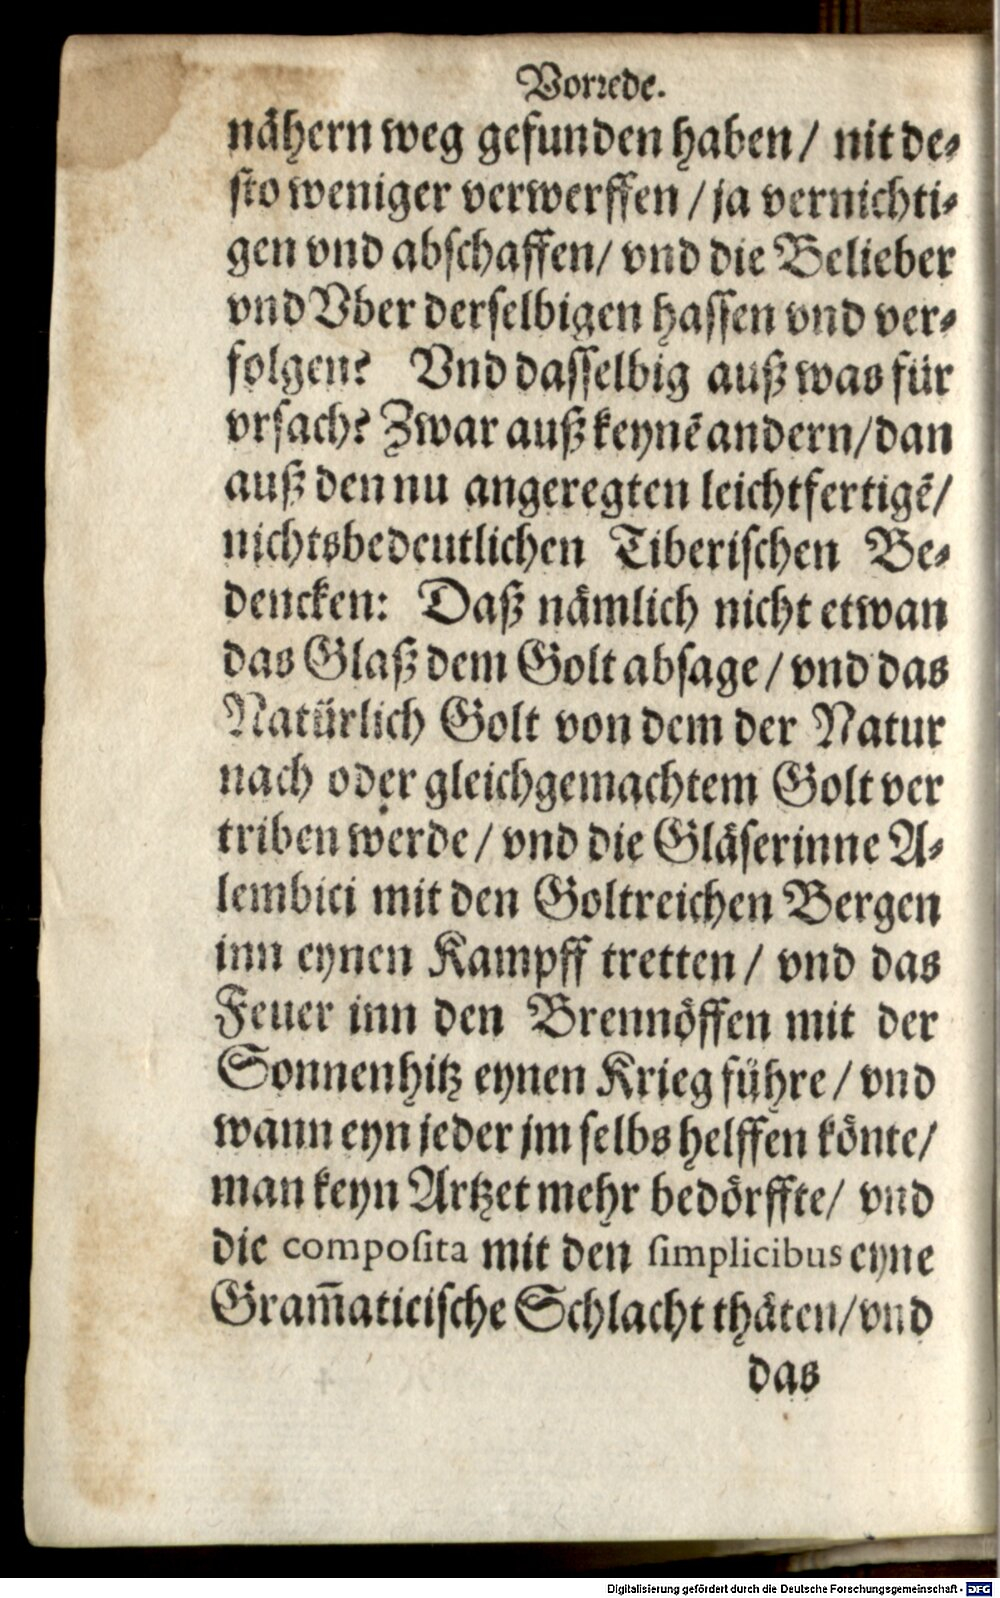 Vorrede.
nähern weg gefunden haben / nit de⸗
sto weniger verwerffen / ja vernichti⸗
gen vnd abschaffen / vnd die Belieber
vnd Vber derselbigen hassen vnd ver⸗
folgen? Vnd dasselbig auß was für
vrsach? Zwar auß keynē andern / dan
auß den nu angeregten leichtfertigē /
nichtsbedeutlichen Tiberischen Be⸗
dencken: Daß nämlich nicht etwan
das Glaß dem Golt absage / vnd das
Natürlich Golt von dem der Natur
nach oder gleichgemachtem Golt ver
triben werde / vnd die Gläserinne A⸗
lembici mit den Goltreichen Bergen
inn eynen Kampff tretten / vnd das
Feuer inn den Brennöffen mit der
Sonnenhitz eynen Krieg führe / vnd
wann eyn jeder jm selbs helffen könte /
man keyn Artzet mehr bedörffte / vnd
die composita mit den simplicibus eyne
Gram̄aticische Schlacht thäten / vnd
das
Digitalisierung gefördert durch die Deutsche Forschungsgemeinschaft - DFG